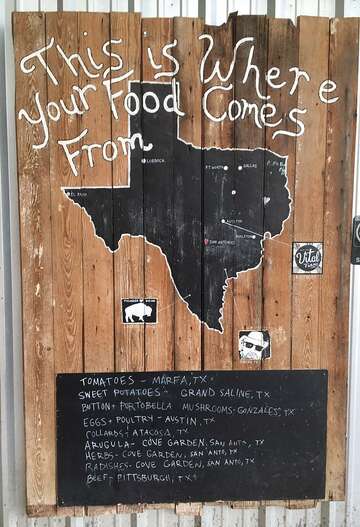 This is Where
Your Food Comes
From
LUBBOCK
FT WORTH
DALLAS
EL PASO
AUSTIN
HOUSTON
SAN ANTONIO
Vital
TOMATOES - MARFA, TX
SWEET POTATOES - GRAND SALINE, TX
BUTTON + PORTOBELLA MUSHROOMS - GONZALES, TX
EGGS + POULTRY - AUSTIN, TX
COLLARDS - ATACOSA, TX
ARUGULA - COVE GARDEN, SAN ANTO, TX
HERBS - COVE GARDEN, SAN ANTO, TX
RADISHES - COVE GARDEN, SAN ANTO, TX
BEEF - PITTSBURGH, TX